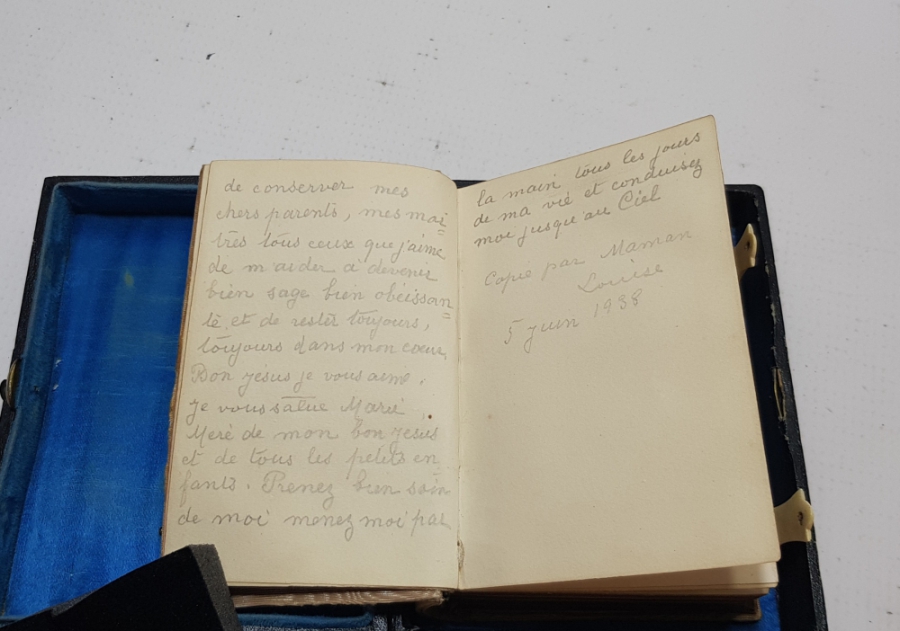 de conserver mes
chers parents, mes maî=
tres tous ceux que j'aime
de m'aider à devenir
bien sage bien obéissan=
te et de rester toujours,
toujours dans mon coeur.
Bon Jésus je vous aime.
Je vous salue Marie,
Mère de mon bon Jesus
et de tous les petits en
fants. Prenez bien soin
de moi menez moi par
la main tous les jours
de ma vie et conduisez
moi jusqu'au Ciel
Copié par Maman
Louise
5 juin 1938